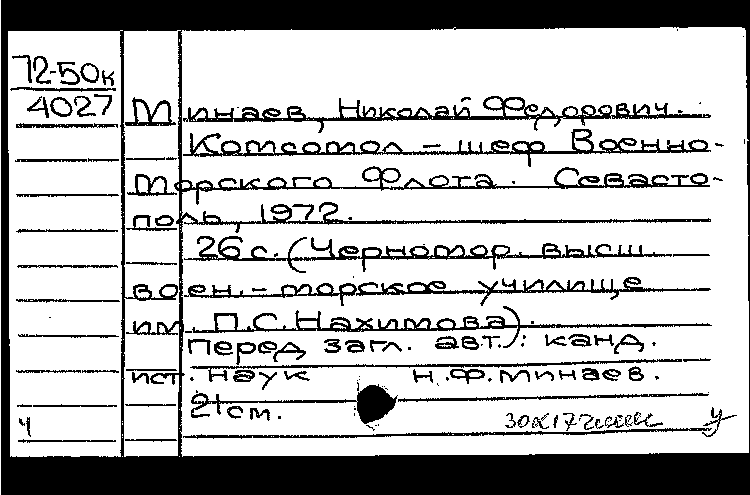 72-50к
4027
Минаев, Николай Федорович.
Комсомол – шеф Военно-
Морского Флота. Севасто-
поль, 1972.
26 с. (Черномор. высш.
воен.-морское училище
им. П.С. Нахимова).
перед загл. авт.: канд.
ист. наук Н.Ф. Минаев.
21 см.
Ч
У